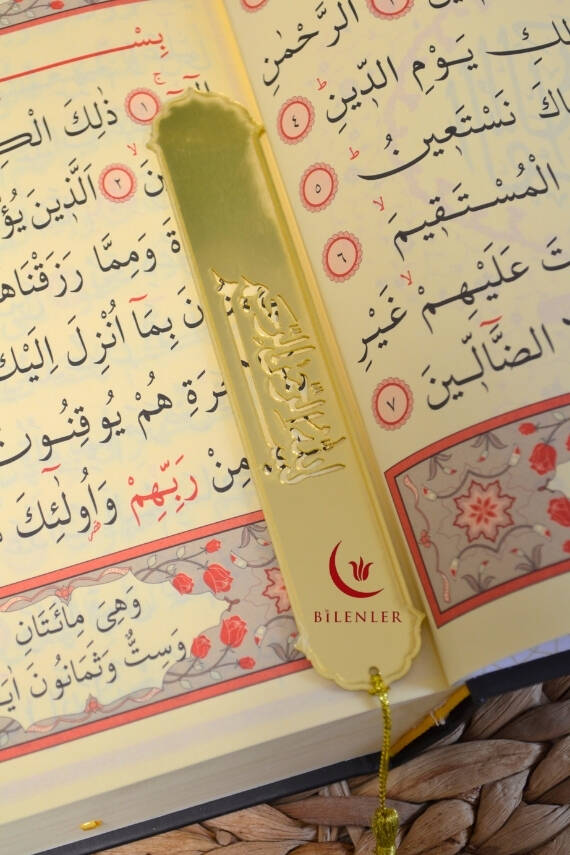 الرَّحْمٰنِ
لِكِ يَوْمِ الدّ۪ينِۜ ٤
اكَ نَسْتَع۪ينُۜ ٥
الْمُسْتَق۪يمَۙ ٦
تَ عَلَيْهِمْۙ غَيْرِ
الضَّٓالّ۪ينَ ٧
بِسْـ
الٓمٓۚ ١ ذٰلِكَ الْكِـ
نَۙ ٢ اَلَّذ۪ينَ يُؤْ
ةَ وَمِمَّا رَزَقْنَاهُـ
نَ بِمَٓا اُنْزِلَ اِلَيْكَ
خِرَةِ هُمْ يُوقِنُونَ
مِنْ رَبِّهِمْ وَاُو۬لٰٓئِكَ
وَهِىَ مِائَتَانِ
وَسِتٌّ وَثَمَانُونَ اٰيَـ
بسم الله الرحمن الرحيم
BİLENLER